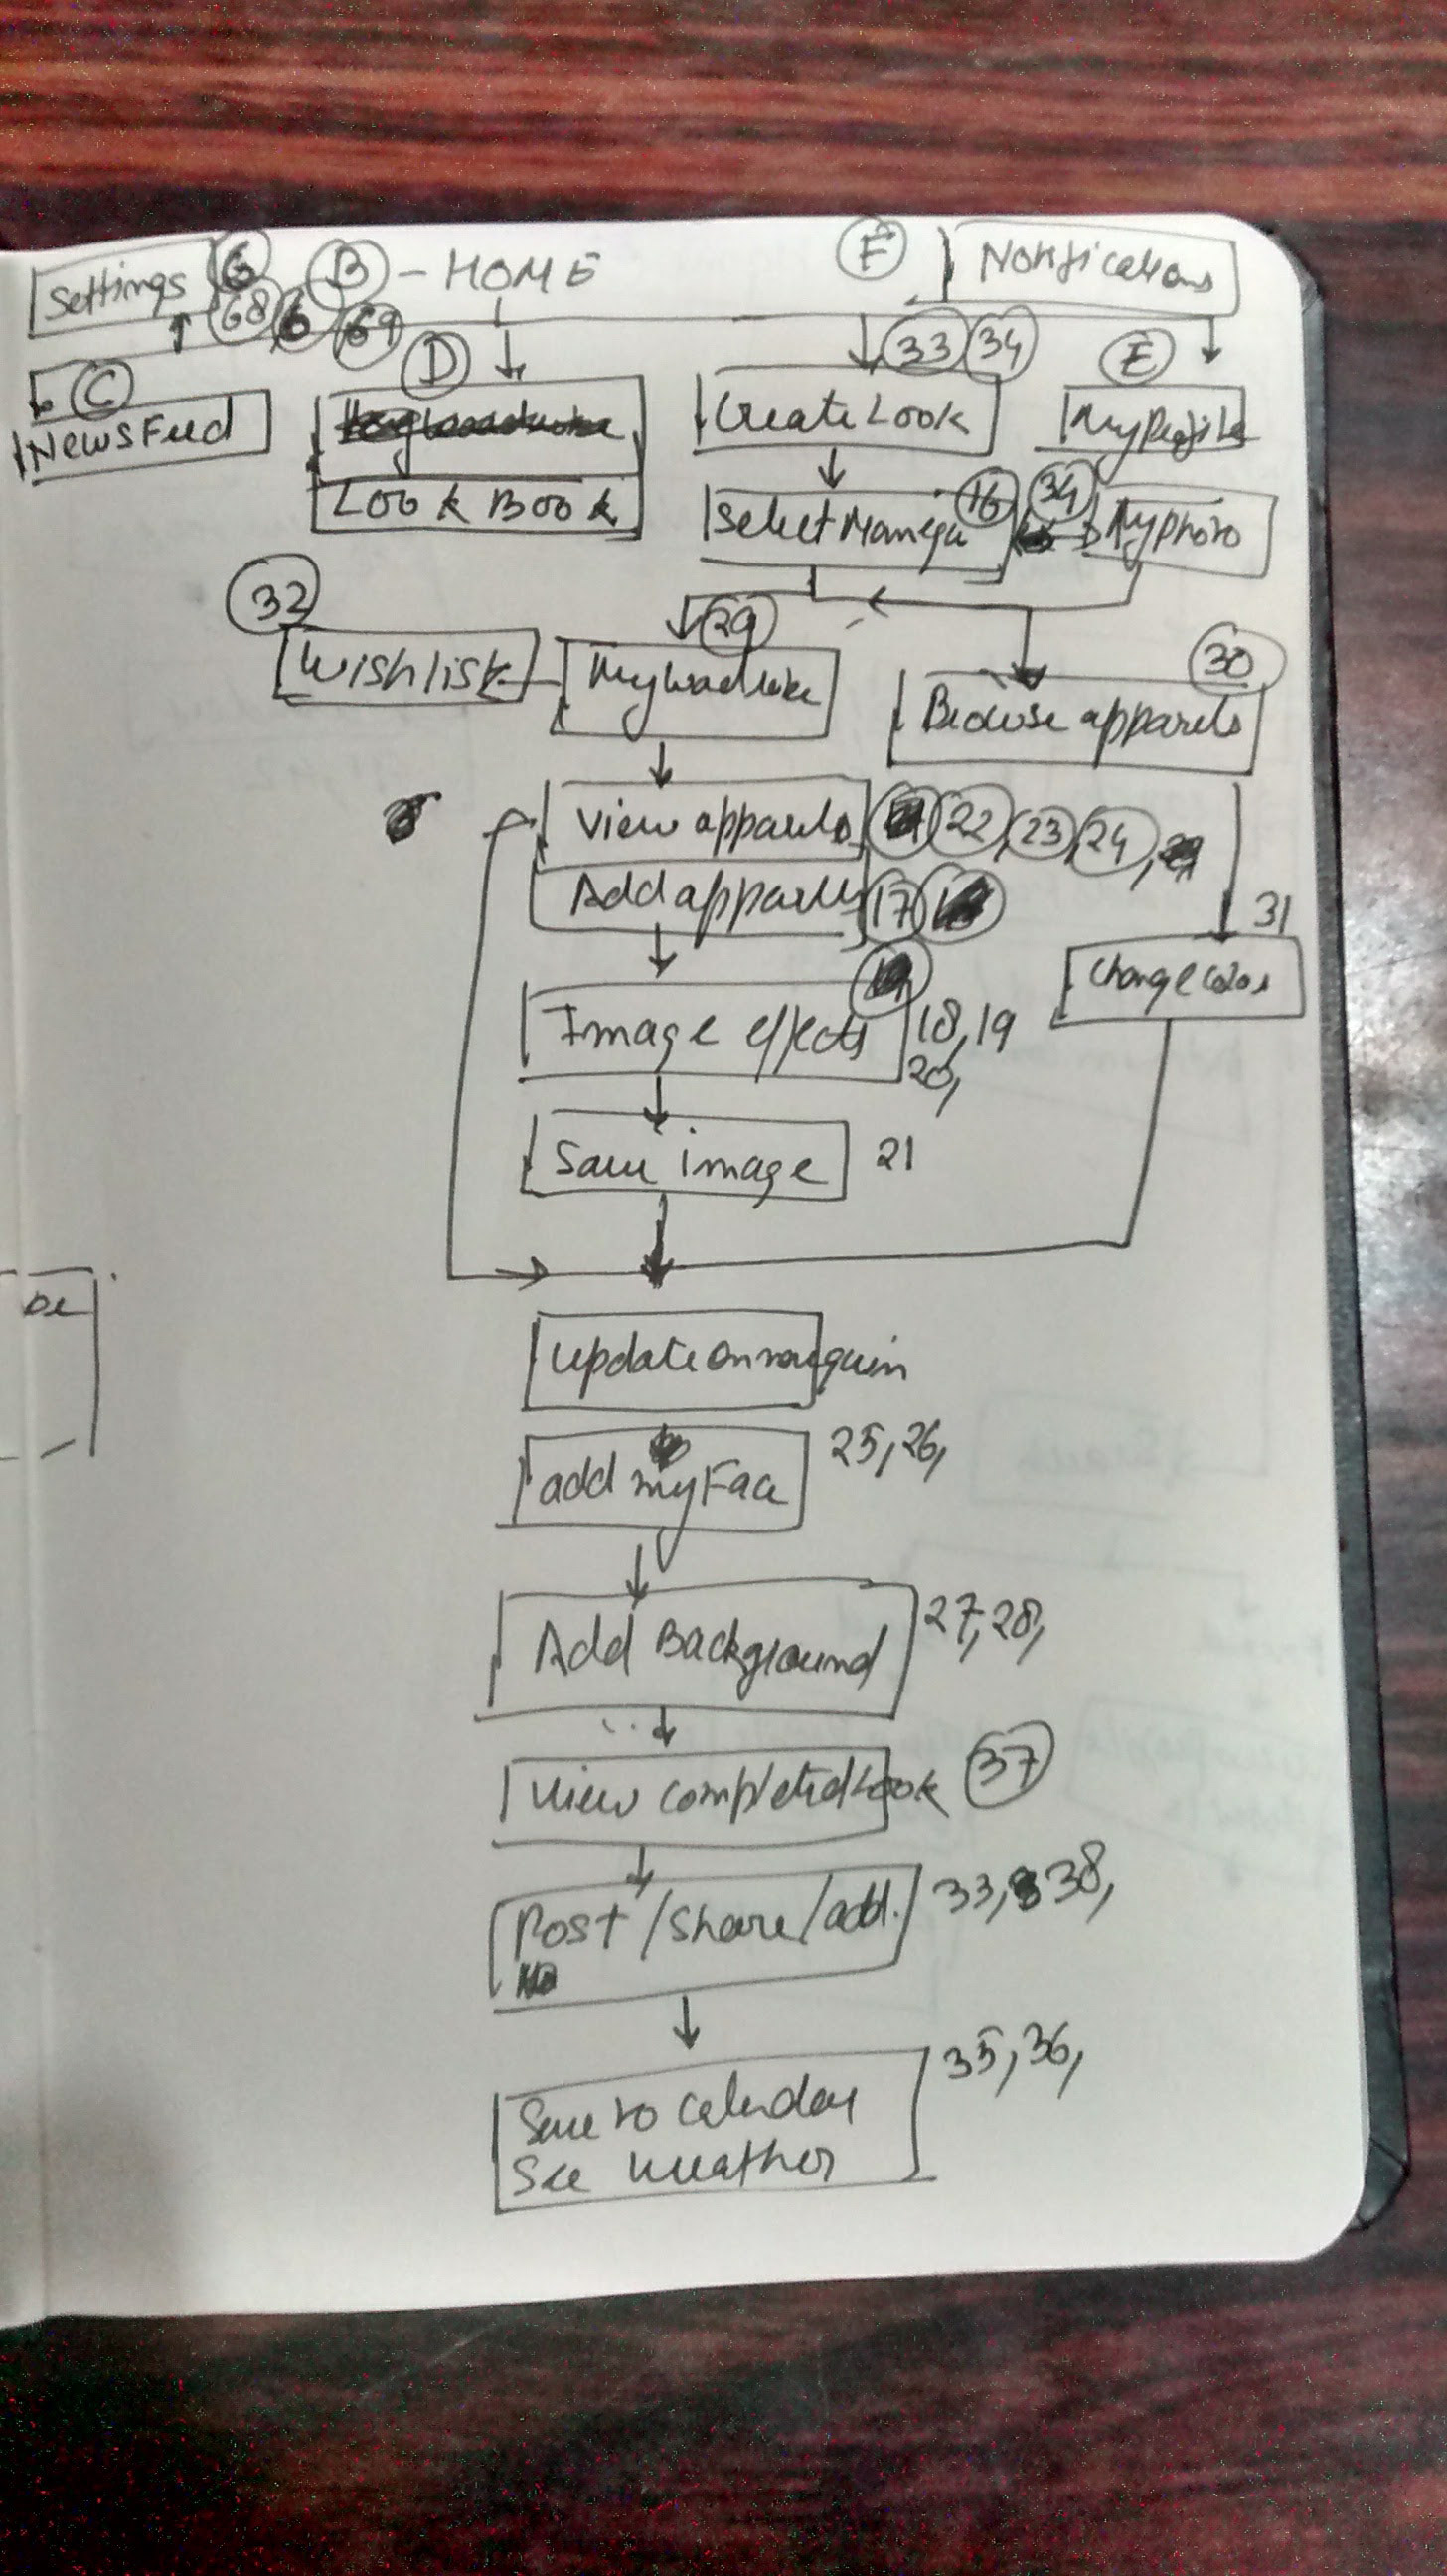 Settings G B - HOME F Notifications
68 69
C D 33 34 E
NewsFeed Create Look My Profile
Look Book
Select Maneqa 16 34 Myphoto
32 29
Wishlist My wadrobe 30
Browse apparels
View apparels 22, 23, 24,
Add apparels 17
31
Change color
Image effects 18, 19
20,
Save image 21
Update on manquin
add my Face 25, 26,
Add Background 27, 28,
View completed Look 37
Post / Share / add. 33, 38,
Save to Calenday 35, 36,
See weather